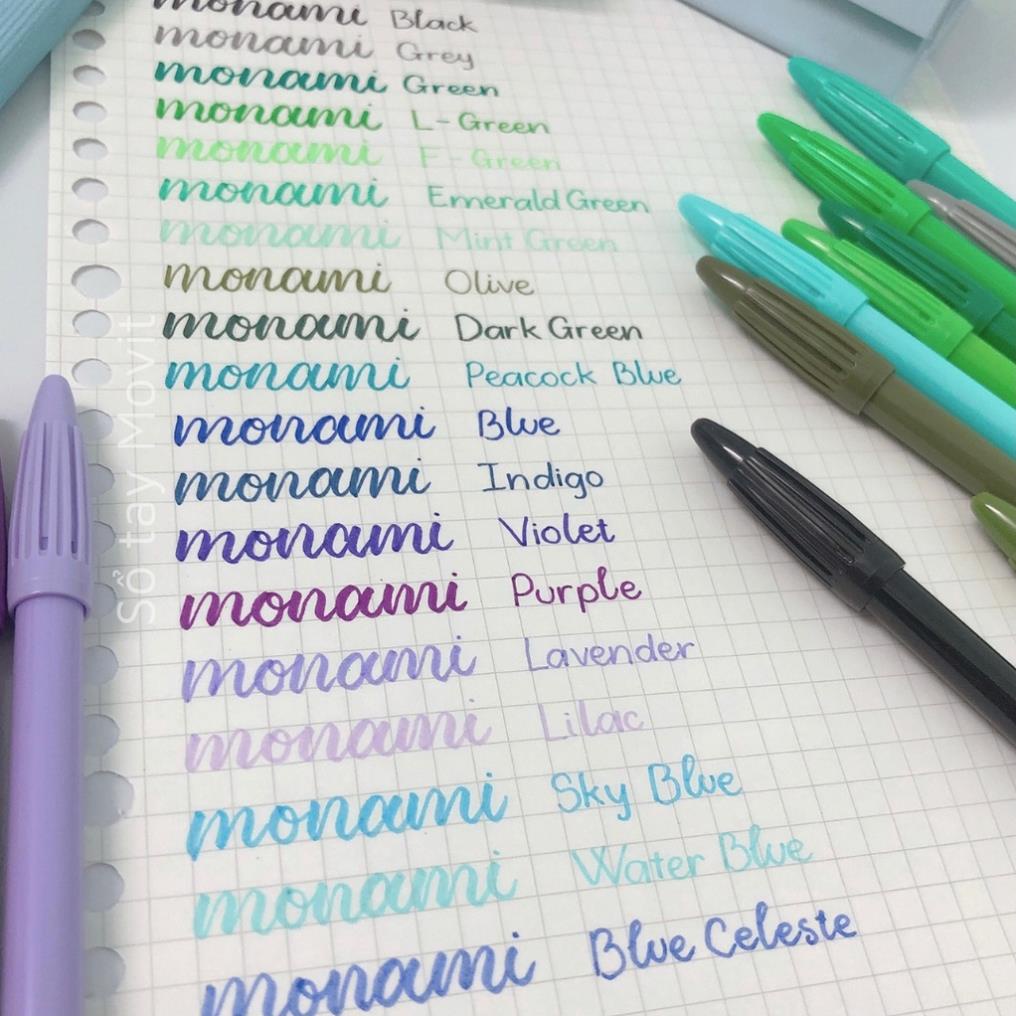 monami Black
monami Grey
monami Green
monami L-Green
monami F-Green
monami Emerald Green
monami Mint Green
monami Olive
monami Dark Green
monami Peacock Blue
monami Blue
monami Indigo
monami Violet
monami Purple
monami Lavender
monami Lilac
monami Sky Blue
monami Water Blue
monami Blue Celeste
Sổ tay Movit